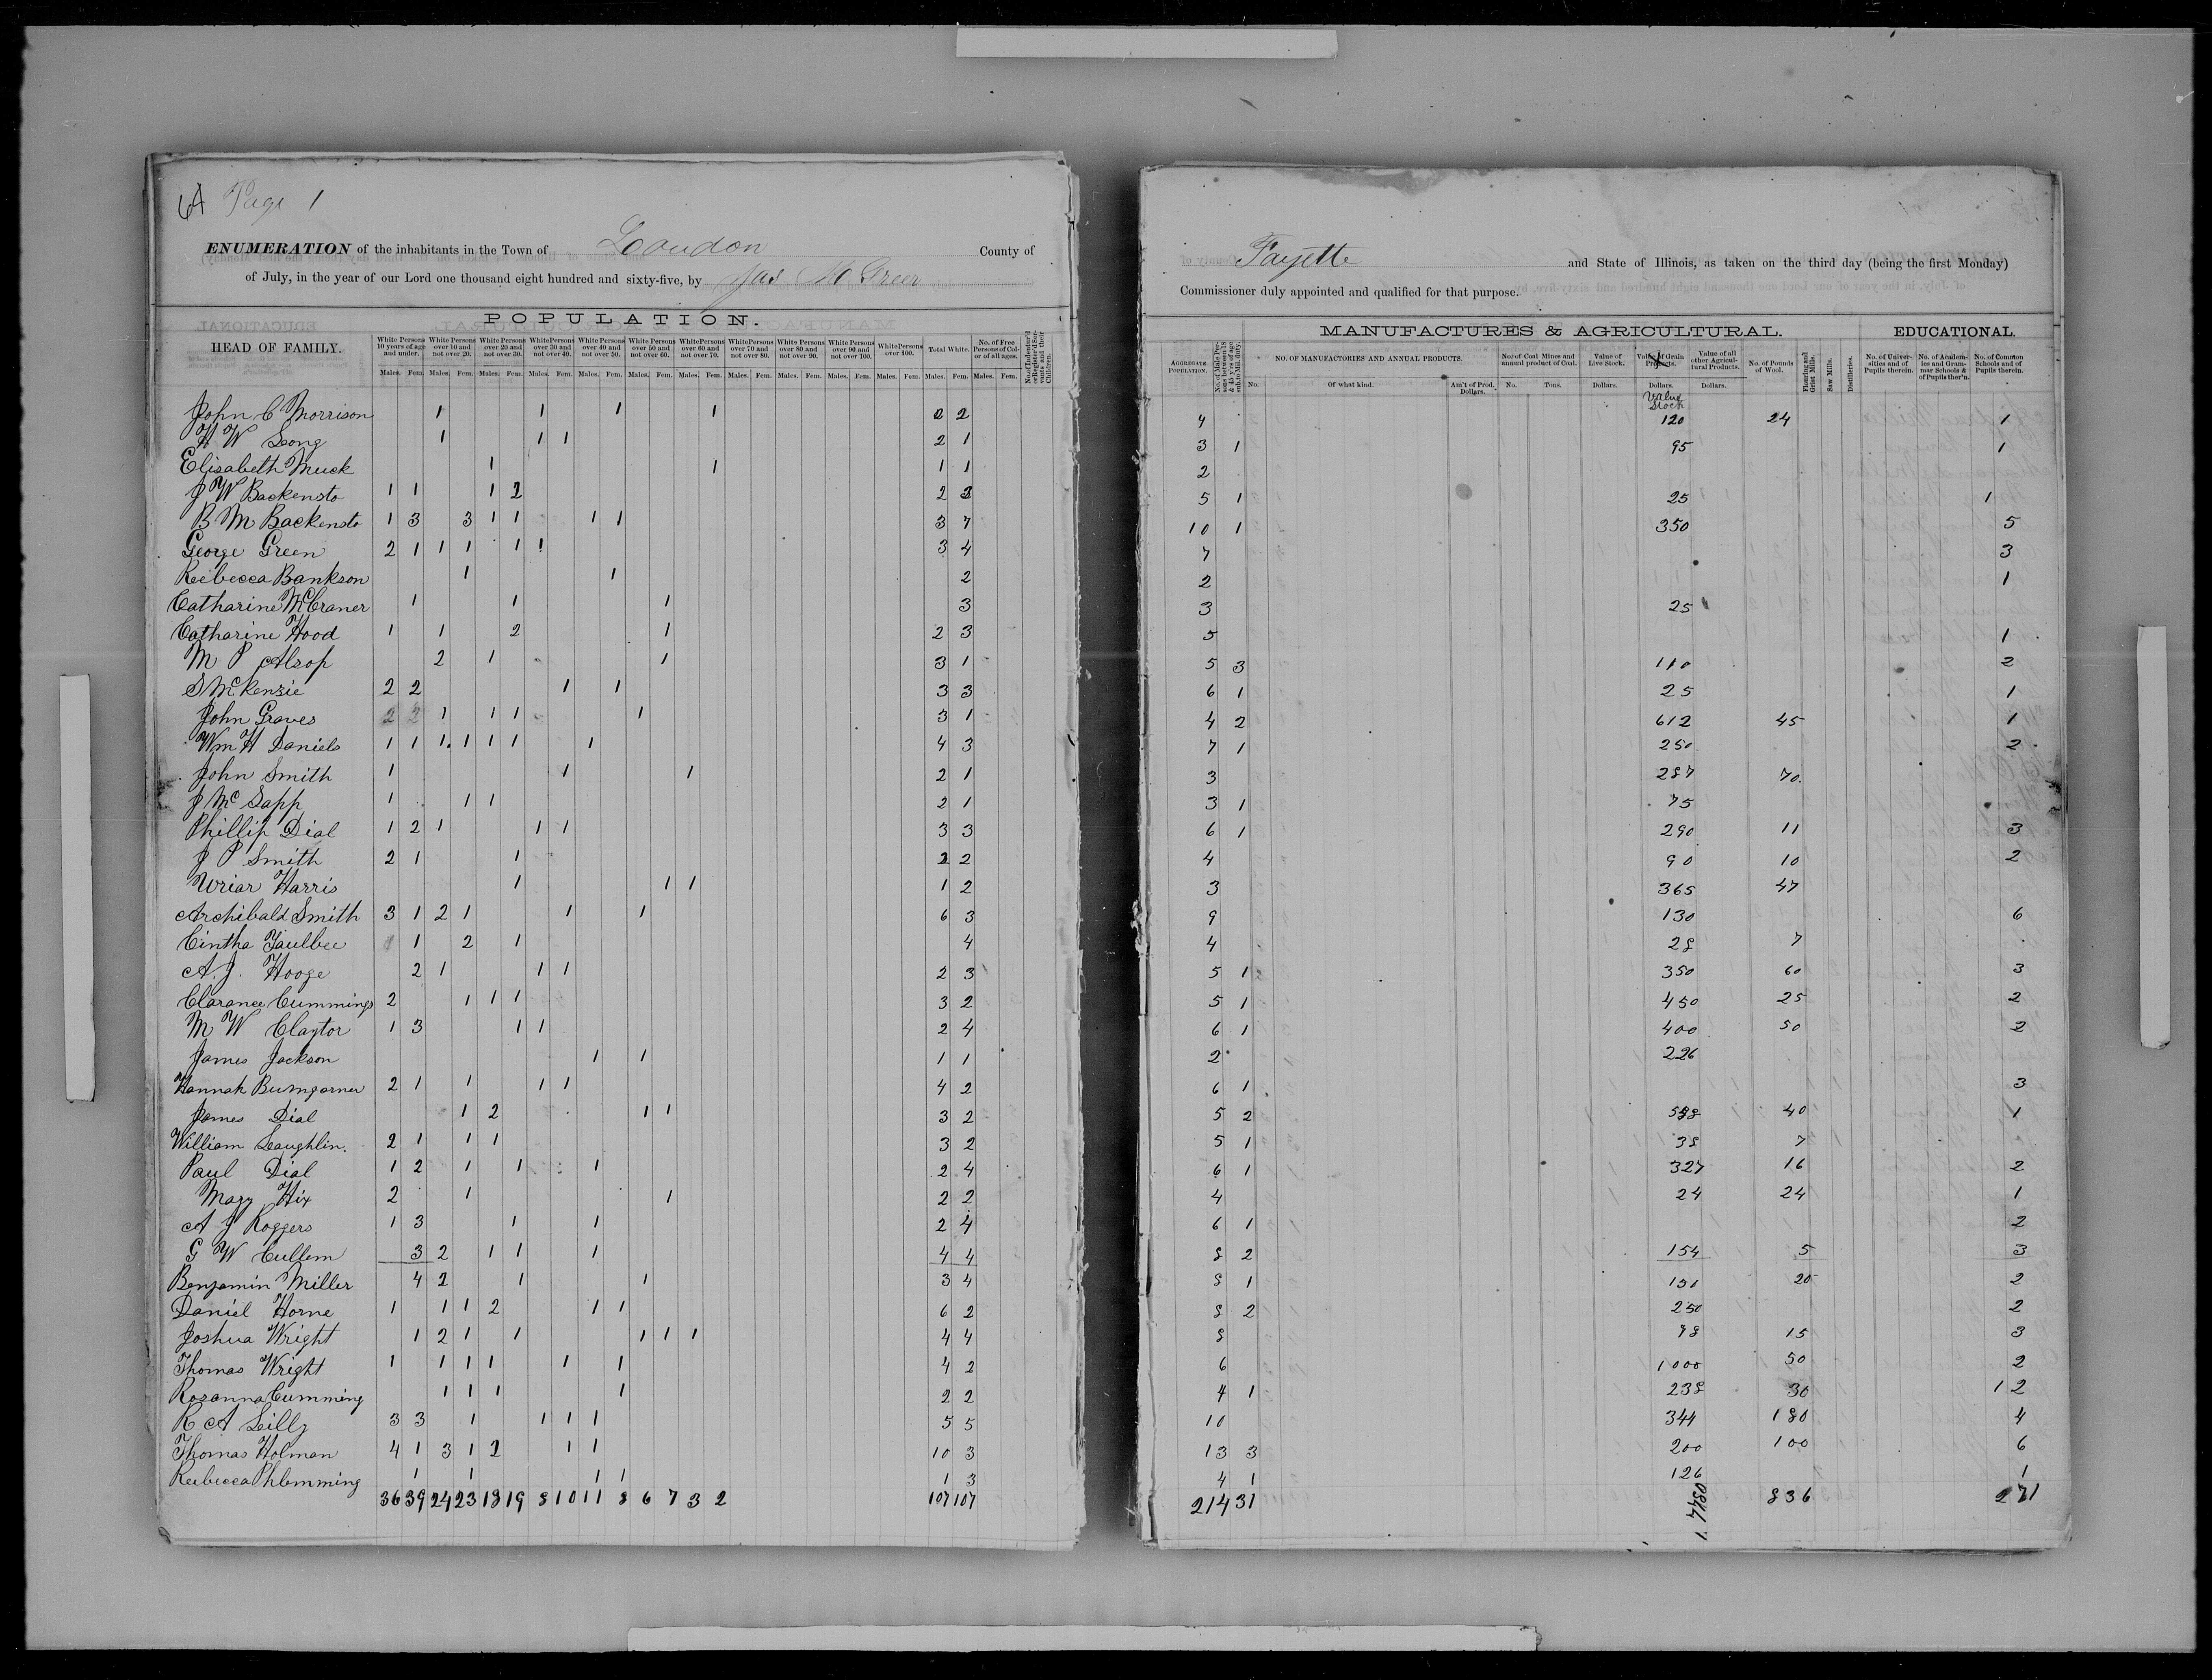 64 Page 1
ENUMERATION of the inhabitants in the Town of Loudon County of
of July, in the year of our Lord one thousand eight hundred and sixty-five, by Jas M Greer
POPULATION.
HEAD OF FAMILY.
White Persons 10 years of age and under. White Persons over 10 and not over 20. White Persons over 20 and not over 30. White Persons over 30 and not over 40. White Persons over 40 and not over 50. White Persons over 50 and not over 60. White Persons over 60 and not over 70. White Persons over 70 and not over 80. White Persons over 80 and not over 90. White Persons over 90 and not over 100. White Persons over 100. Total White. No. of Free Persons of Color of all ages.
Males. Fem. Males. Fem. Males. Fem. Males. Fem. Males. Fem. Males. Fem. Males. Fem. Males. Fem. Males. Fem. Males. Fem. Males. Fem. Males. Fem. Males. Fem.
John C Morrison 1 1 1 1 2 2
H W Long 1 1 1 2 1
Elisabeth Muck 1 1 1 1
J W Backensto 1 1 1 2 2 3
B M Backensto 1 3 3 1 1 1 1 3 7
George Green 2 1 1 1 1 1 3 4
Reebecca Bankson 1 1 2
Catharine McCraner 1 1 1 3
Catharine Hood 1 1 2 1 2 3
M P Alsop 2 1 1 3 1
S McKenzie 2 2 1 1 3 3
John Graves 2 2 1 1 1 1 3 1
Wm H Daniels 1 1 1 1 1 1 1 4 3
John Smith 1 1 1 2 1
J Mc Sapp 1 1 1 2 1
Phillip Dial 1 2 1 1 1 3 3
J P Smith 2 1 1 2 2
Uriar Harris 1 1 1 1 2
Archibald Smith 3 1 2 1 1 1 6 3
Cintha Faulbee 1 2 1 4
A. J. Hooge 2 1 1 1 2 3
Clarance Cummings 2 1 1 1 3 2
M W Claytor 1 3 1 1 2 4
James Jackson 1 1 1 1
Hannah Bumgarner 2 1 1 1 1 4 2
James Dial 1 2 1 1 3 2
William Laughlin. 2 1 1 1 3 2
Paul Dial 1 2 1 1 1 2 4
Mary Hix 2 1 1 2 2
A J Roggers 1 3 1 1 2 4
G W Cullem 3 2 1 1 1 4 4
Benjamin Miller 4 2 1 1 3 4
Daniel Horne 1 1 1 2 1 1 6 2
Joshua Wright 1 2 1 1 1 1 1 4 4
Thomas Wright 1 1 1 1 1 1 4 2
Rosanna Cumming 1 1 1 1 2 2
R A Lilly 3 3 1 1 1 1 5 5
Thomas Holman 4 1 3 1 2 1 1 10 3
Reebecca Phlemming 1 1 1 1 1 3
36 39 24 23 18 19 8 10 11 8 6 7 3 2 107 107
Fayette and State of Illinois, as taken on the third day (being the first Monday)
Commissioner duly appointed and qualified for that purpose.
MANUFACTURES & AGRICULTURAL. EDUCATIONAL.
AGGREGATE POPULATION. NO. OF MANUFACTORIES AND ANNUAL PRODUCTS. No of Coal Mines and annual product of Coal. Value of Live Stock. Value of Grain Products. Value of all other Agricultural Products. No. of Pounds of Wool. Flouring and Grist Mills. Saw Mills. Distilleries. No. of Universities and of Pupils therein. No. of Academies and Grammar Schools & of Pupils ther'n. No. of Common Schools and of Pupils therein.
No. Of what kind. Am't of Prod. Dollars. No. Tons. Dollars. Dollars. Dollars.
Value Stock
4 120 24 1
3 1 95 1
2
5 1 25 1
10 1 350 5
7 3
2 1
3 25
5 1
5 3 110 2
6 1 25 1
4 2 612 45 1
7 1 250 2
3 287 70
3 1 75
6 1 290 11 3
4 90 10 2
3 365 47
9 130 6
4 28 7
5 1 350 60 3
5 1 450 25 2
6 1 400 50 2
2 226
6 1 3
5 2 40 1
5 1 38 7
6 1 327 16 2
4 24 24 1
6 1 2
8 2 154 5 3
8 1 150 20 2
8 2 250 2
8 78 15 3
6 1000 50 2
4 1 238 30 1 2
10 344 180 4
13 3 200 100 6
4 1 126 1
214 31 836